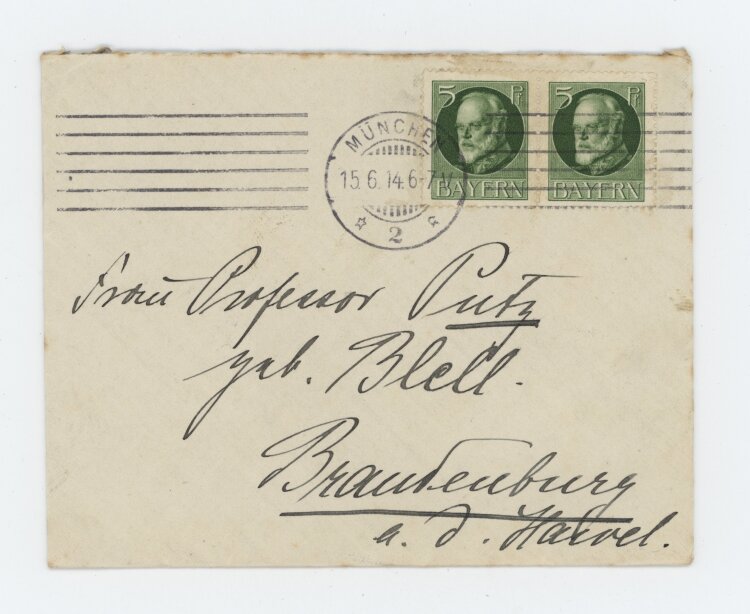 5 Pf BAYERN
5 Pf BAYERN
MÜNCHEN
15.6.14.6-7 V
2
Frau Professor Putz
geb. Blell.
Brandenburg
a. d. Havel.